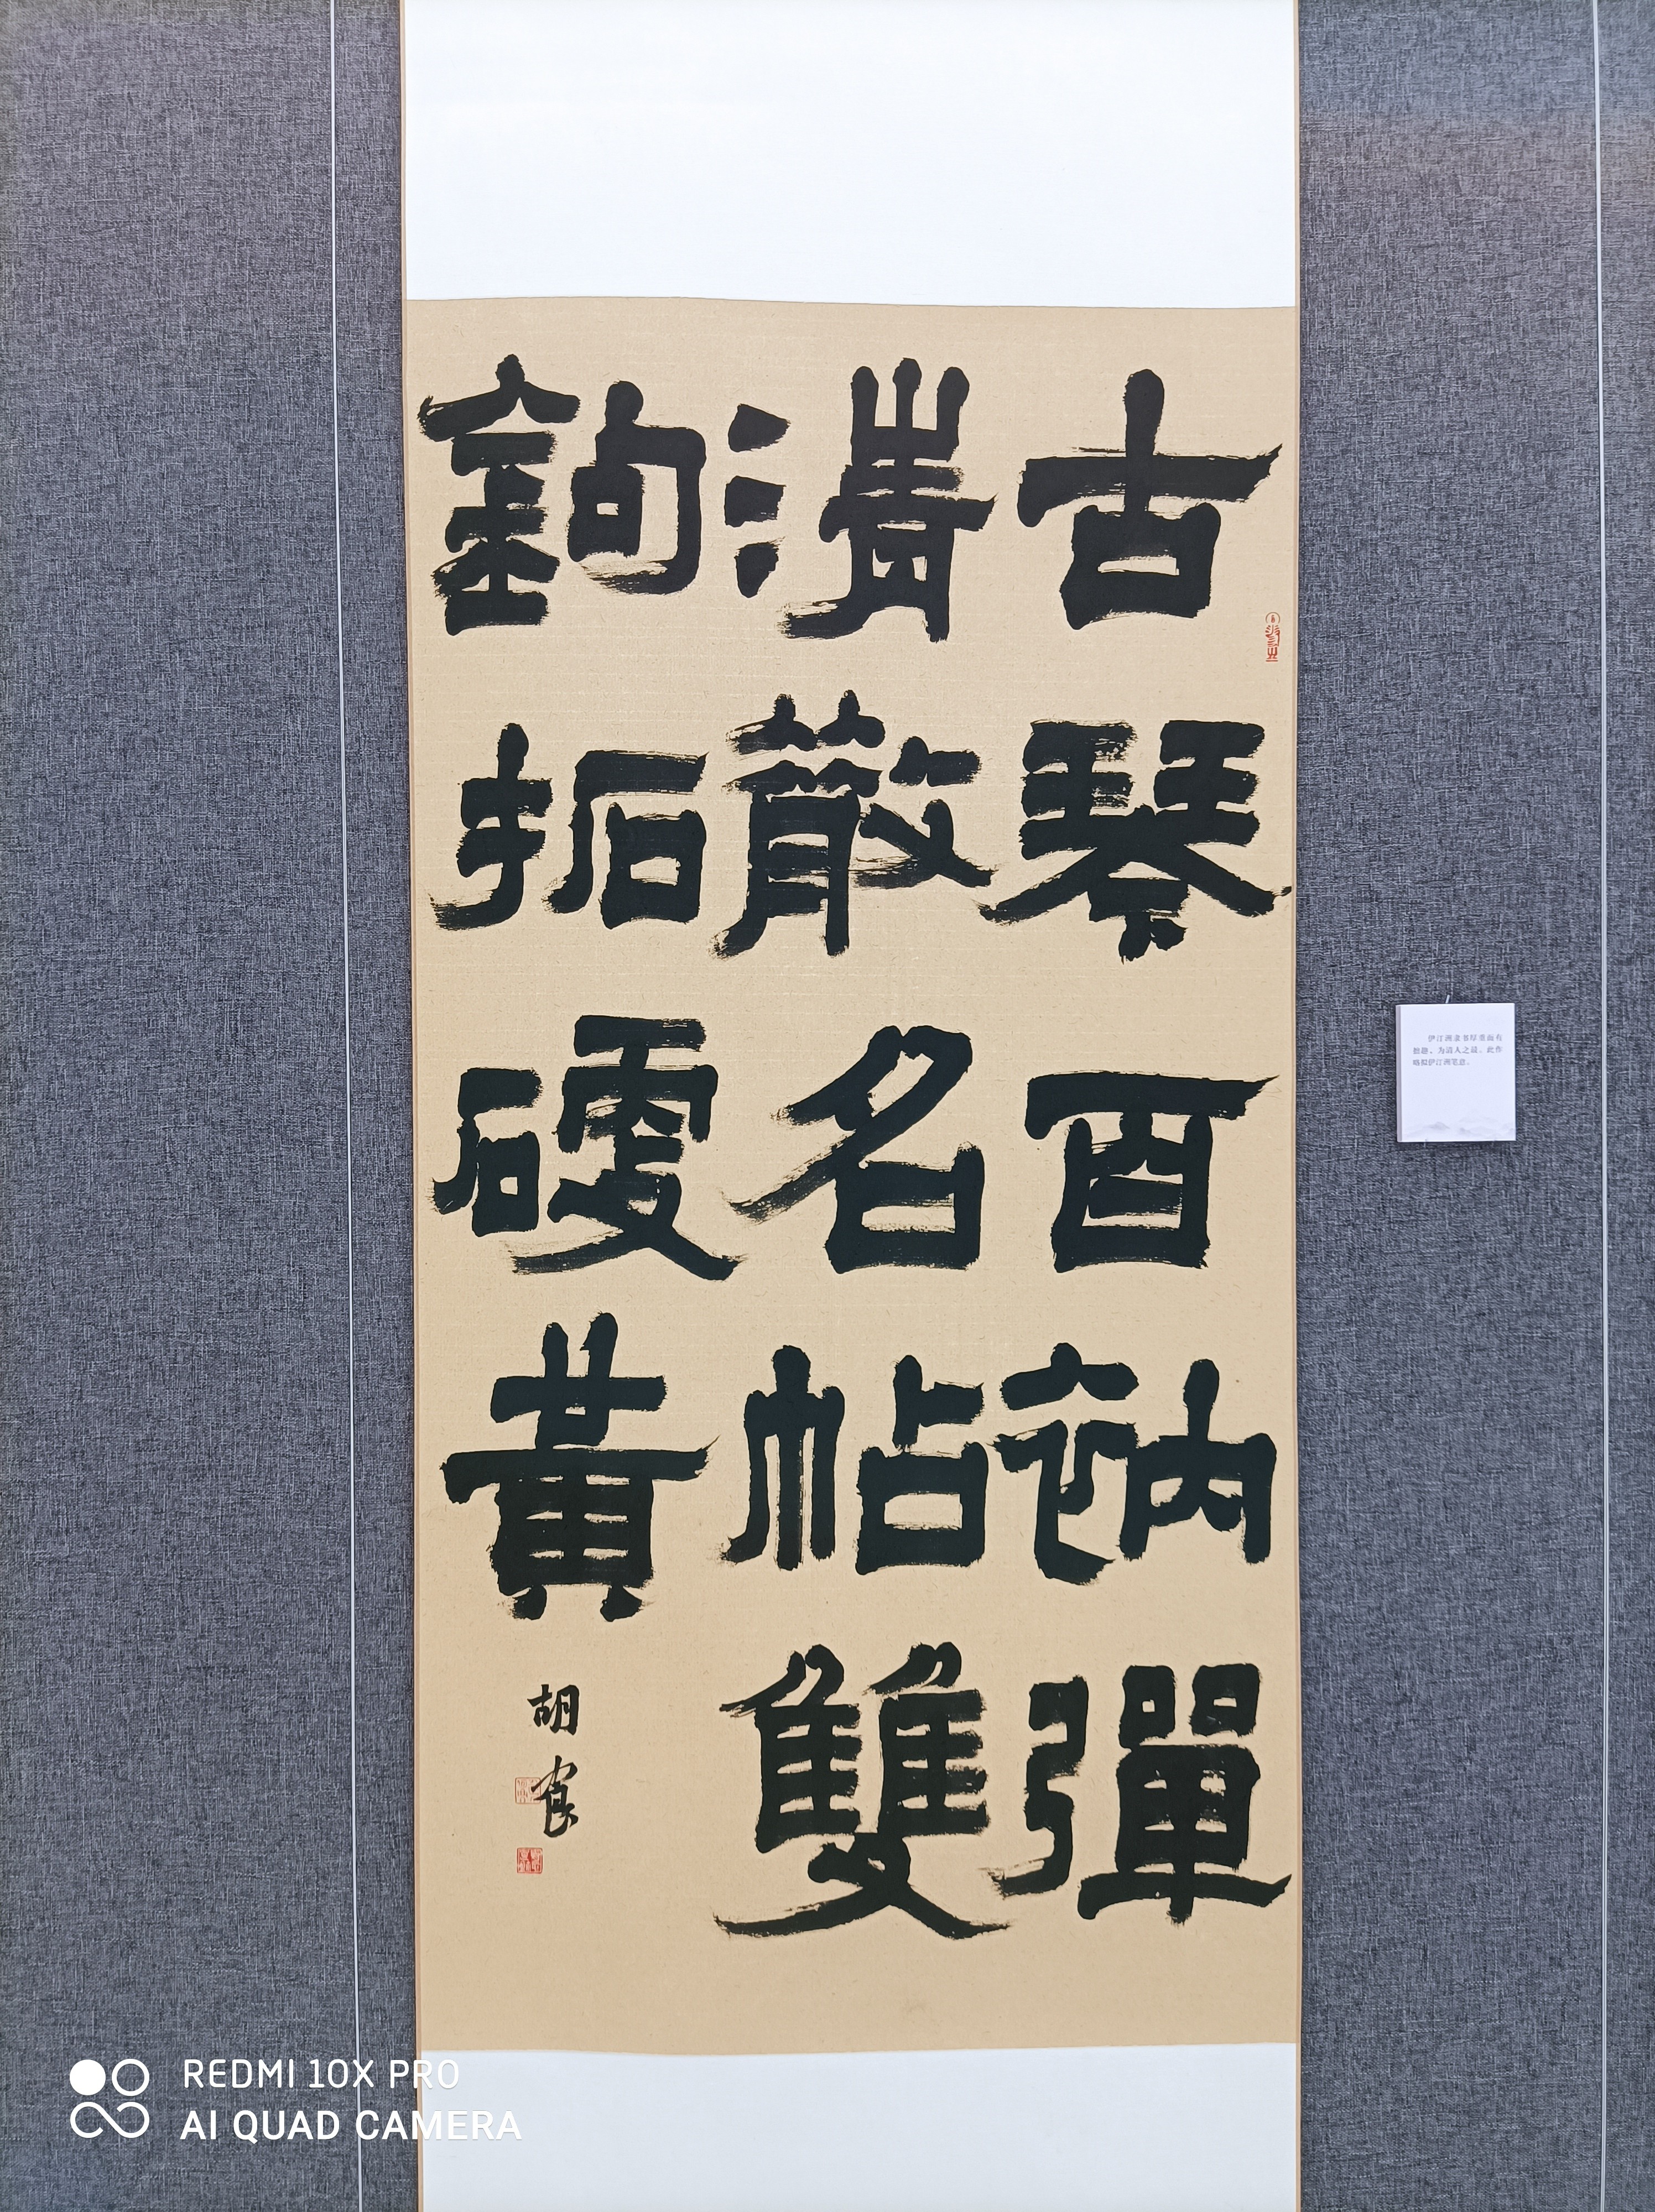 古琴百衲彈
清散名帖雙
鉤拓硬黃
胡
伊汀洲隶书厚重而有
趣，为清人之最。此作
略拟伊汀洲笔意。
REDMI 10X PRO
AI QUAD CAMERA